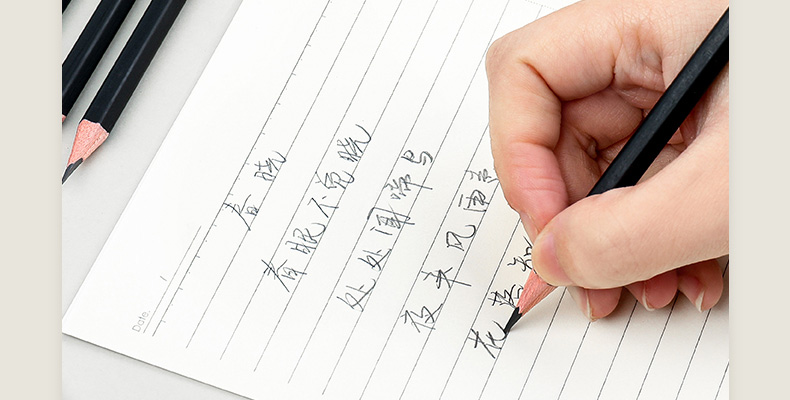 Date.
春晓
春眠不觉晓
处处闻啼鸟
夜来风雨声
花落知